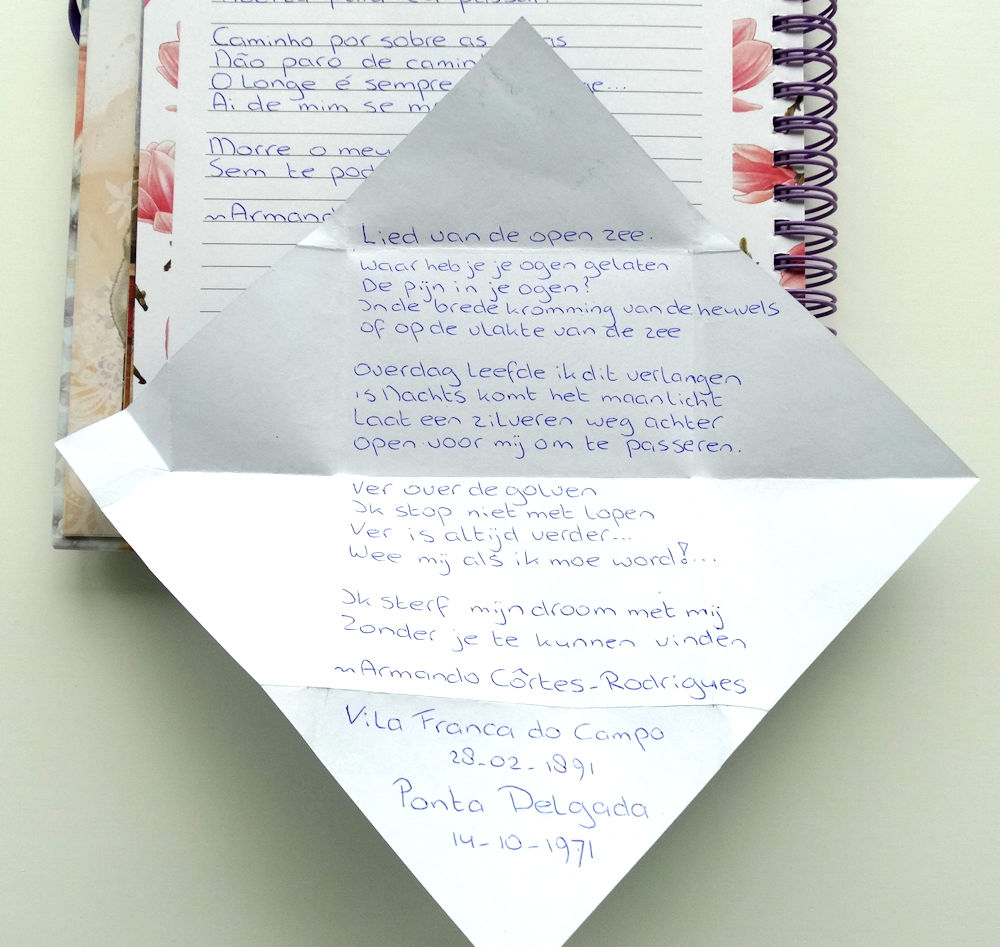 Caminho por sobre as
Não paro de
O Longe é sempre
Ai de mim se
Morre o meu
Sem te
~Armando
Lied van de open zee.
Waar heb je je ogen gelaten
De pijn in je ogen?
In de brede kromming van de heuvels
of op de vlakte van de zee
Overdag leefde ik dit verlangen
's Nachts komt het maanlicht
Laat een zilveren weg achter
open voor mij om te passeren.
Ver over de golven
Ik stop niet met lopen
Ver is altijd verder...
Wee mij als ik moe word!...
Ik sterf mijn droom met mij
Zonder je te kunnen vinden
~Armando Côrtes-Rodrigues
Vila Franca do Campo
28-02-1891
Ponta Delgada
14-10-1971